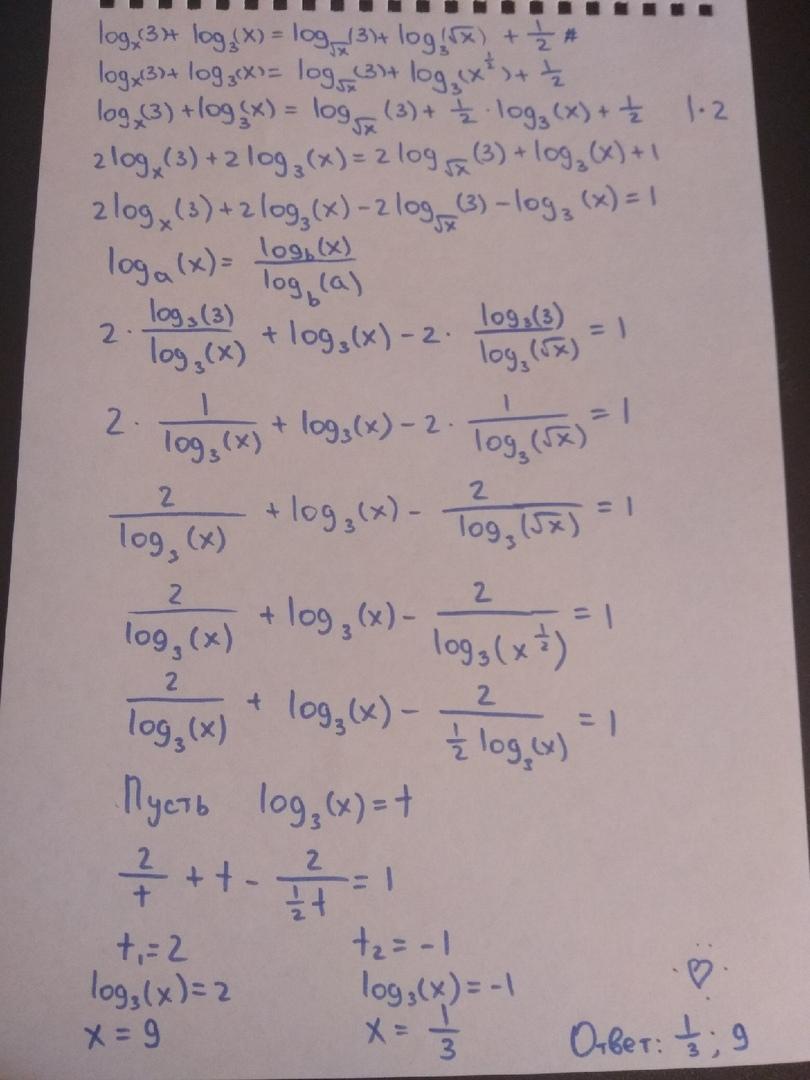 logₓ(3)+ log₃(x) = log_√x(3)+ log₃(√x) + 1/2 #
logₓ(3)+ log₃(x)= log_√x(3)+ log₃(x^(1/2))+ 1/2
logₓ(3) +log₃(x) = log_√x (3)+ 1/2 · log₃(x)+ 1/2 |·2
2logₓ(3)+2log₃(x)=2log_√x(3)+log₃(x)+1
2logₓ(3)+2log₃(x)-2log_√x(3)-log₃(x)=1
logₐ(x)= log_b(x)/log_b(a)
2· log₃(3)/log₃(x) + log₃(x)-2· log₃(3)/log₃(√x) = 1
2· 1/log₃(x) + log₃(x)-2· 1/log₃(√x) = 1
2/log₃(x) + log₃(x)- 2/log₃(√x) = 1
2/log₃(x) + log₃(x)- 2/log₃(x^(1/2)) = 1
2/log₃(x) + log₃(x)- 2/(1/2 log₃(x)) = 1
Пусть log₃(x)=t
2/t + t - 2/(1/2 t) = 1
t₁=2 t₂=-1
log₃(x)=2 log₃(x)=-1
x = 9 x = 1/3 Ответ: 1/3; 9